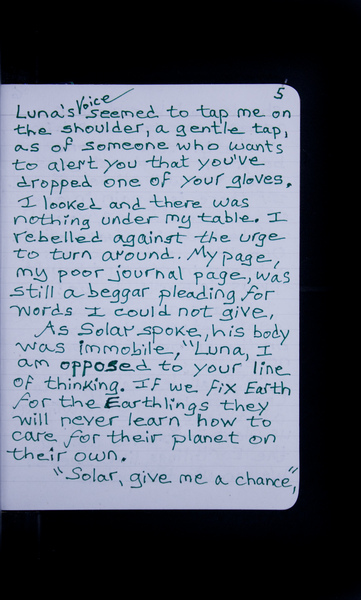 5
Luna's Voice seemed to tap me on
the shoulder, a gentle tap,
as of someone who wants
to alert you that you've
dropped one of your gloves.
I looked and there was
nothing under my table. I
rebelled against the urge
to turn around. My page,
my poor journal page, was
still a beggar pleading for
words I could not give.
As Solar spoke, his body
was immobile, "Luna, I
am opposed to your line
of thinking. If we fix Earth
for the Earthlings they
will never learn how to
care for their planet on
their own.
"Solar, give me a chance,"